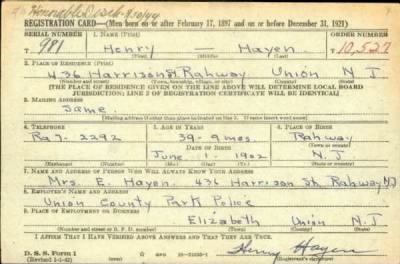 Honorable Disch - 9/30/44
REGISTRATION CARD—(Men born on or after February 17, 1897 and on or before December 31, 1921)
SERIAL NUMBER 1. NAME (Print) ORDER NUMBER
T 981 Henry — Hayen T 10,527
(First) (Middle) (Last)
2. PLACE OF RESIDENCE (Print)
436 Harrison St. Rahway Union N J
(Number and street) (Town, township, village, or city) (County) (State)
[THE PLACE OF RESIDENCE GIVEN ON THE LINE ABOVE WILL DETERMINE LOCAL BOARD
JURISDICTION; LINE 2 OF REGISTRATION CERTIFICATE WILL BE IDENTICAL]
3. MAILING ADDRESS
Same
[Mailing address if other than place indicated on line 2. If same insert word same]
4. TELEPHONE 5. AGE IN YEARS 6. PLACE OF BIRTH
Ra 7-2292 39-9 mos. Rahway
DATE OF BIRTH (Town or county)
June 1 - 1902 N. J.
(Exchange) (Number) (Mo.) (Day) (Yr.) (State or country)
7. NAME AND ADDRESS OF PERSON WHO WILL ALWAYS KNOW YOUR ADDRESS
Mrs. E. Hayen. 436 Harrison St. Rahway NJ
8. EMPLOYER'S NAME AND ADDRESS
Union County Park Police
9. PLACE OF EMPLOYMENT OR BUSINESS
Elizabeth Union N. J
(Number and street or R. F. D. number) (Town) (County) (State)
I AFFIRM THAT I HAVE VERIFIED ABOVE ANSWERS AND THAT THEY ARE TRUE.
D. S. S. Form 1 Henry Hayen
(Revised 1-1-42) (over) 16-21630-1 (Registrant's signature)